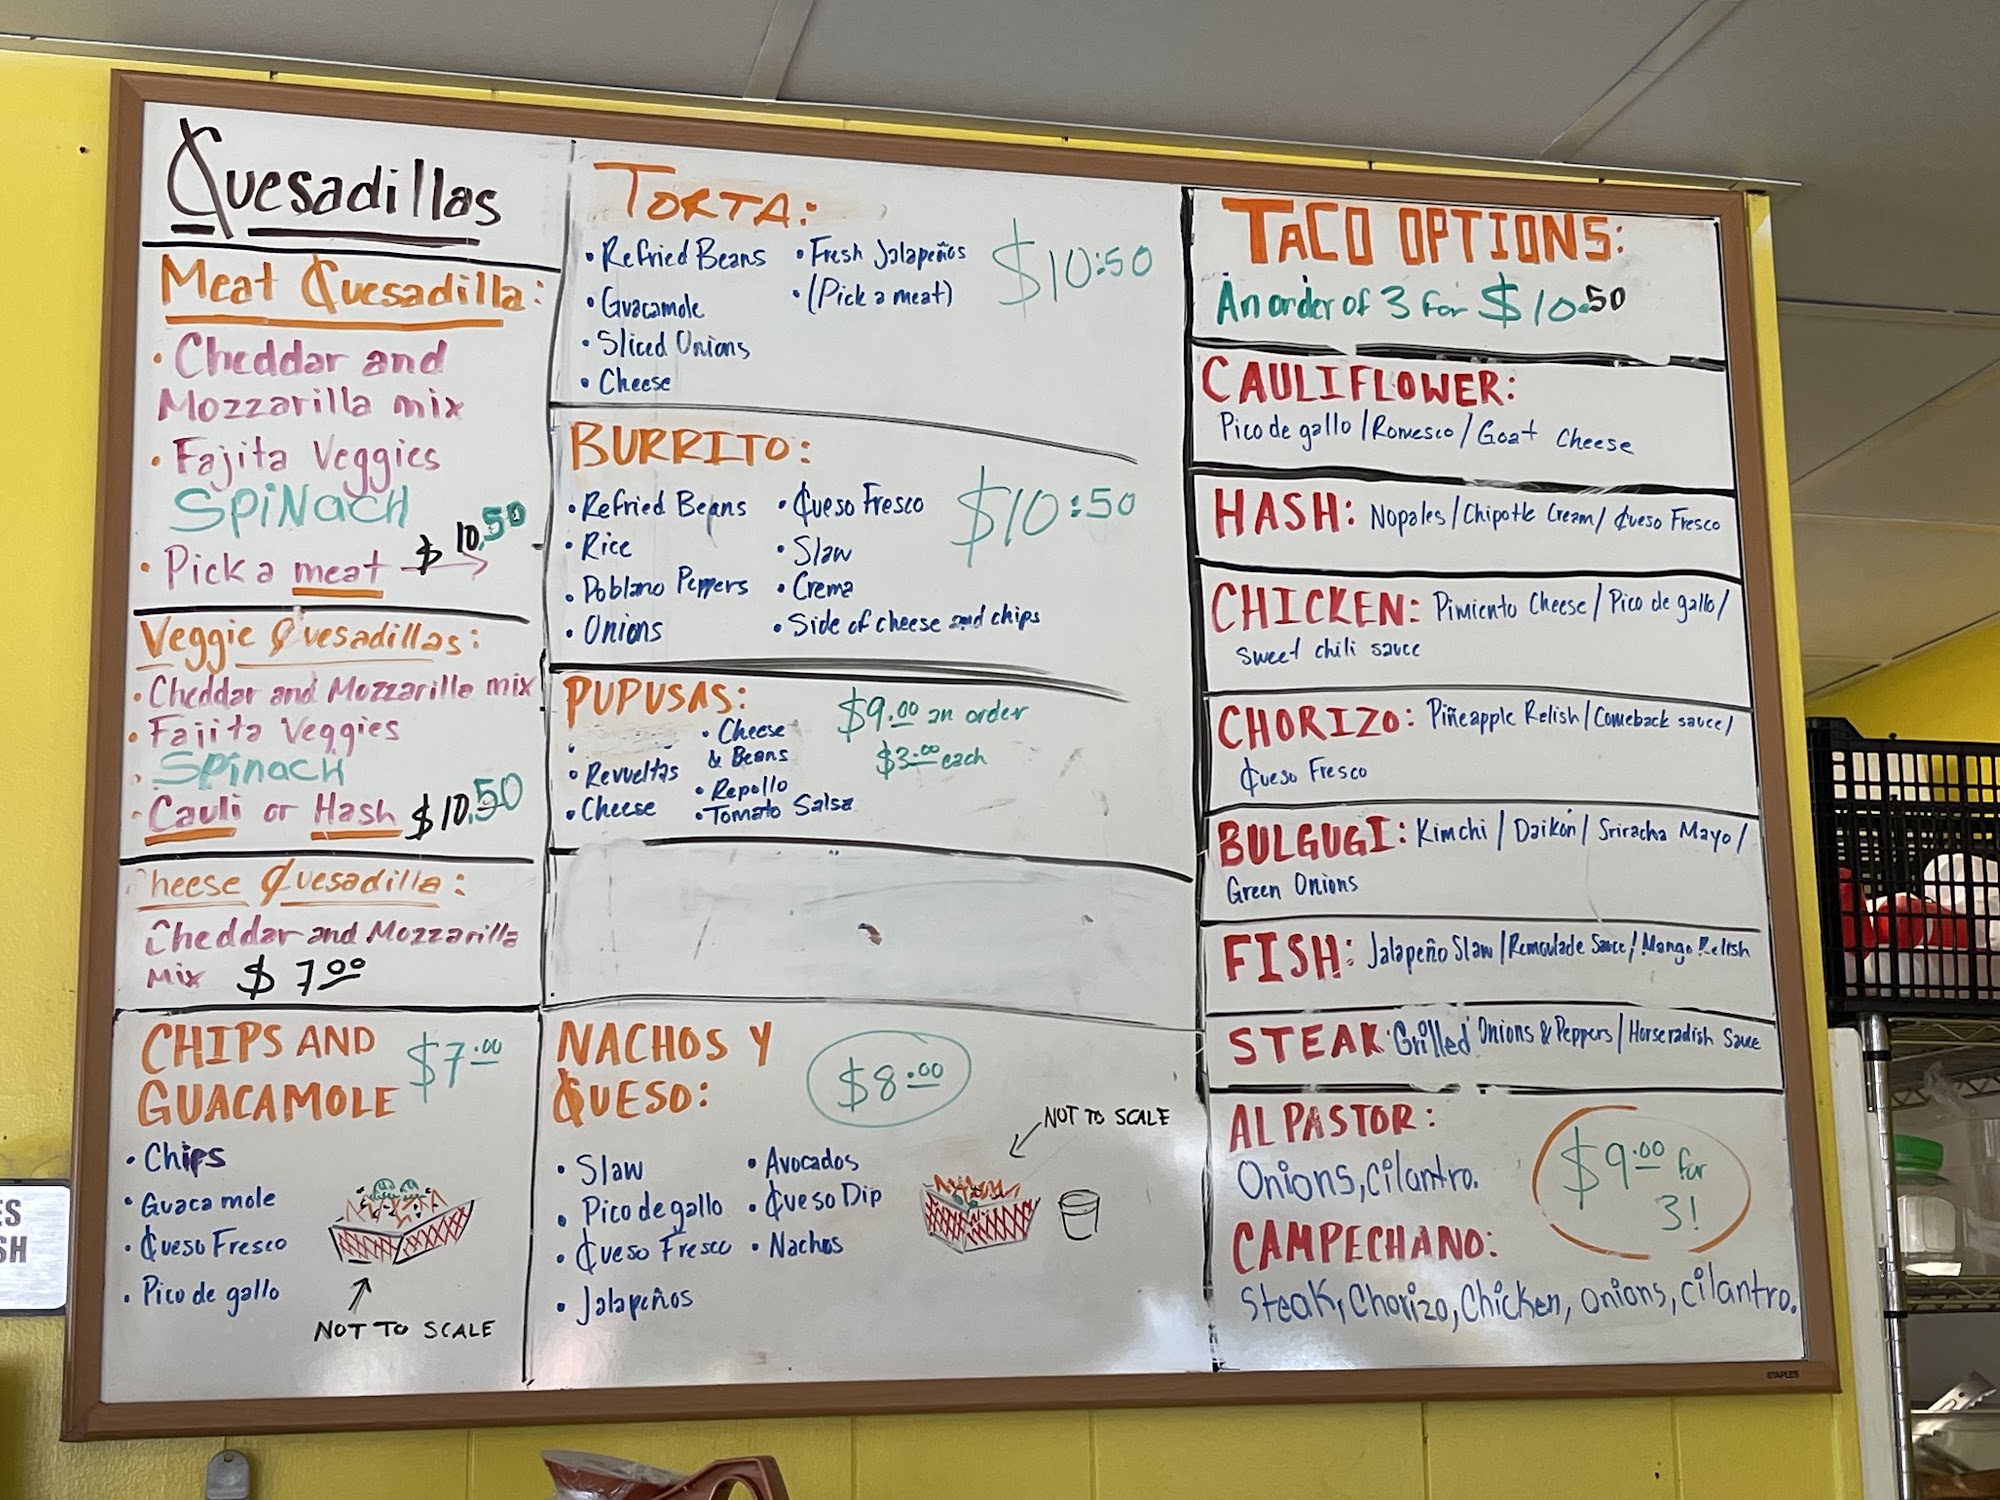 Quesadillas
Meat Quesadilla:
• Cheddar and
Mozzarilla mix
• Fajita Veggies
SPiNACH
• Pick a meat → $ 10.50
Veggie Quesadillas:
• Cheddar and Mozzarilla mix
• Fajita Veggies
• Spinach
• Cauli or Hash $10.50
Cheese Quesadilla:
Cheddar and Mozzarilla
Mix $ 7.00
CHIPS AND
GUACAMOLE
$7.00
• Chips
• Guacamole
• Queso Fresco
• Pico de gallo
NOT TO SCALE
TORTA:
$10:50
• Refried Beans
• Guacamole
• Sliced Onions
• Cheese
• Fresh Jalapeños
• (Pick a meat)
BURRITO:
$10:50
• Refried Beans
• Rice
• Poblano Peppers
• Onions
• Queso Fresco
• Slaw
• Crema
• Side of cheese and chips
PUPUSAS:
$9.00 an order
$3.00 each
• Revueltas
• Cheese
• Cheese
& Beans
• Repollo
• Tomato Salsa
NACHOS Y
QUESO:
$8.00
• Slaw
• Pico de gallo
• Queso Fresco
• Jalapeños
• Avocados
• Queso Dip
• Nachos
NOT TO SCALE
TACO OPTIONS:
An order of 3 for $10.50
CAULIFLOWER:
Pico de gallo / Romesco / Goat Cheese
HASH: Nopales / Chipotle Cream / Queso Fresco
CHICKEN: Pimiento Cheese / Pico de gallo /
Sweet chili sauce
CHORIZO: Piñeapple Relish / Comeback sauce /
Queso Fresco
BULGUGI: Kimchi / Daikon / Sriracha Mayo /
Green Onions
FISH: Jalapeño Slaw / Remoulade Sauce / Mango Relish
STEAK: Grilled Onions & Peppers / Horseradish Sauce
AL PASTOR:
Onions, cilantro.
$9.00 for
3!
CAMPECHANO:
Steak, Chorizo, Chicken, onions, cilantro.
STAPLES
ES
SH